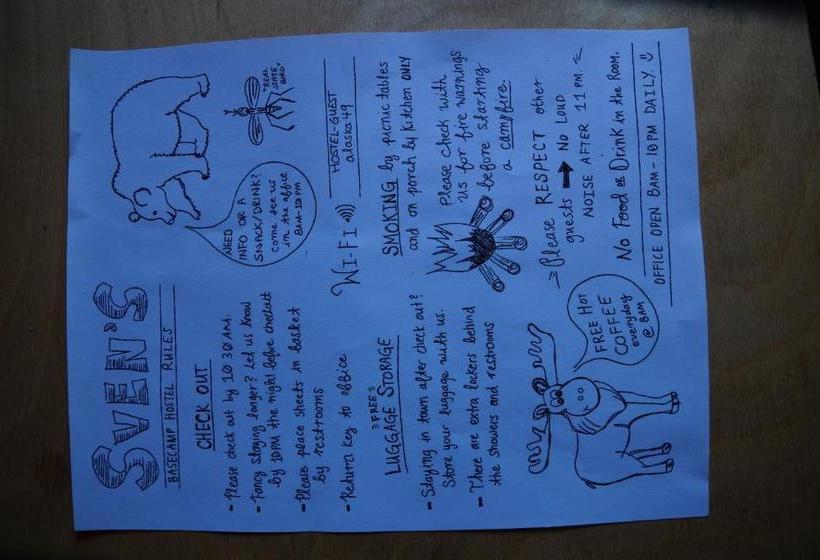 SVEN'S
BASECAMP HOSTEL RULES
CHECK OUT
- Please check out by 10:30 AM.
- Fancy staying longer? Let us know
by 10PM the night before checkout
- Please place sheets in basket
by restrooms
- Return key to office
"FREE"
LUGGAGE STORAGE
- Staying in town after check out?
Store your luggage with us.
- There are extra lockers behind
the showers and restrooms
FREE HOT
COFFEE
everyday
@ 8AM
NEED
INFO OR A
SNACK/DRINK?
come see us
in the office
8AM-10PM
"REAL
STATE
BIRD"
WI-FI
HOSTEL-GUEST
alaska49
SMOKING by picnic tables
and on porch by kitchen ONLY
Please check with
us for fire warnings
before starting
a campfire.
Please RESPECT other
guests → NO LOUD
NOISE AFTER 11 PM.
No Food or Drink in the Room.
OFFICE OPEN 8AM - 10PM DAILY ☺